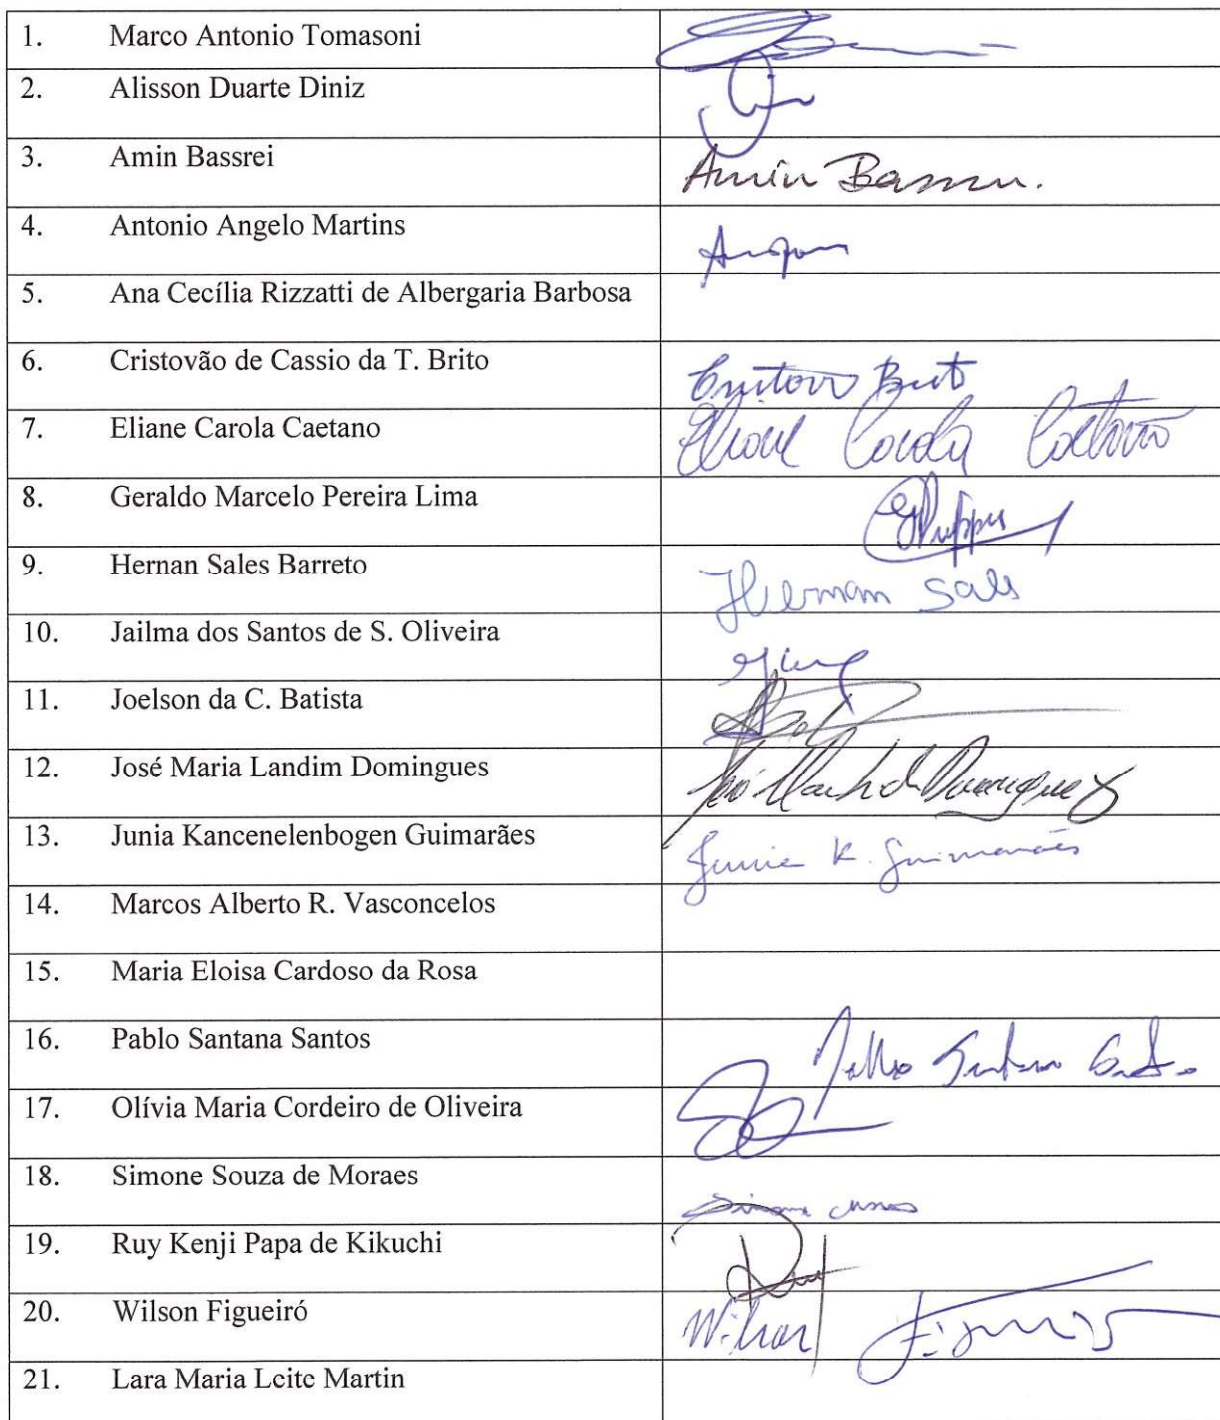 1. Marco Antonio Tomasoni
2. Alisson Duarte Diniz
3. Amin Bassrei Amin
4. Antonio Angelo Martins
5. Ana Cecília Rizzatti de Albergaria Barbosa
6. Cristovão de Cassio da T. Brito
7. Eliane Carola Caetano Eliane Carola Caetano
8. Geraldo Marcelo Pereira Lima
9. Hernan Sales Barreto Hernan Sales
10. Jailma dos Santos de S. Oliveira
11. Joelson da C. Batista
12. José Maria Landim Domingues
13. Junia Kancenelenbogen Guimarães Junia K. Guimarães
14. Marcos Alberto R. Vasconcelos
15. Maria Eloisa Cardoso da Rosa
16. Pablo Santana Santos Pablo Santana Santos
17. Olívia Maria Cordeiro de Oliveira
18. Simone Souza de Moraes Simone
19. Ruy Kenji Papa de Kikuchi
20. Wilson Figueiró Wilson
21. Lara Maria Leite Martin